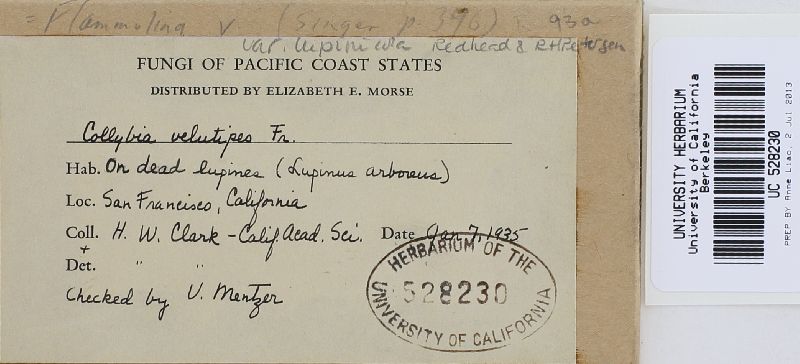 = Flammulina v. (Singer p. 396) 93a
var. lupinicola Redhead & RHPetersen
FUNGI OF PACIFIC COAST STATES
DISTRIBUTED BY ELIZABETH E. MORSE
Collybia velutipes Fr.
Hab. On dead lupines (Lupinus arboreus)
Loc. San Francisco, California
Coll. H. W. Clark - Calif. Acad. Sci. Date Jan 7, 1935
+
Det. " "
Checked by V. Mentzer
HERBARIUM OF THE
528230
UNIVERSITY OF CALIFORNIA
UNIVERSITY HERBARIUM
University of California
Berkeley
UC 528230
PREP BY Anne Liao, 2 Jul 2013